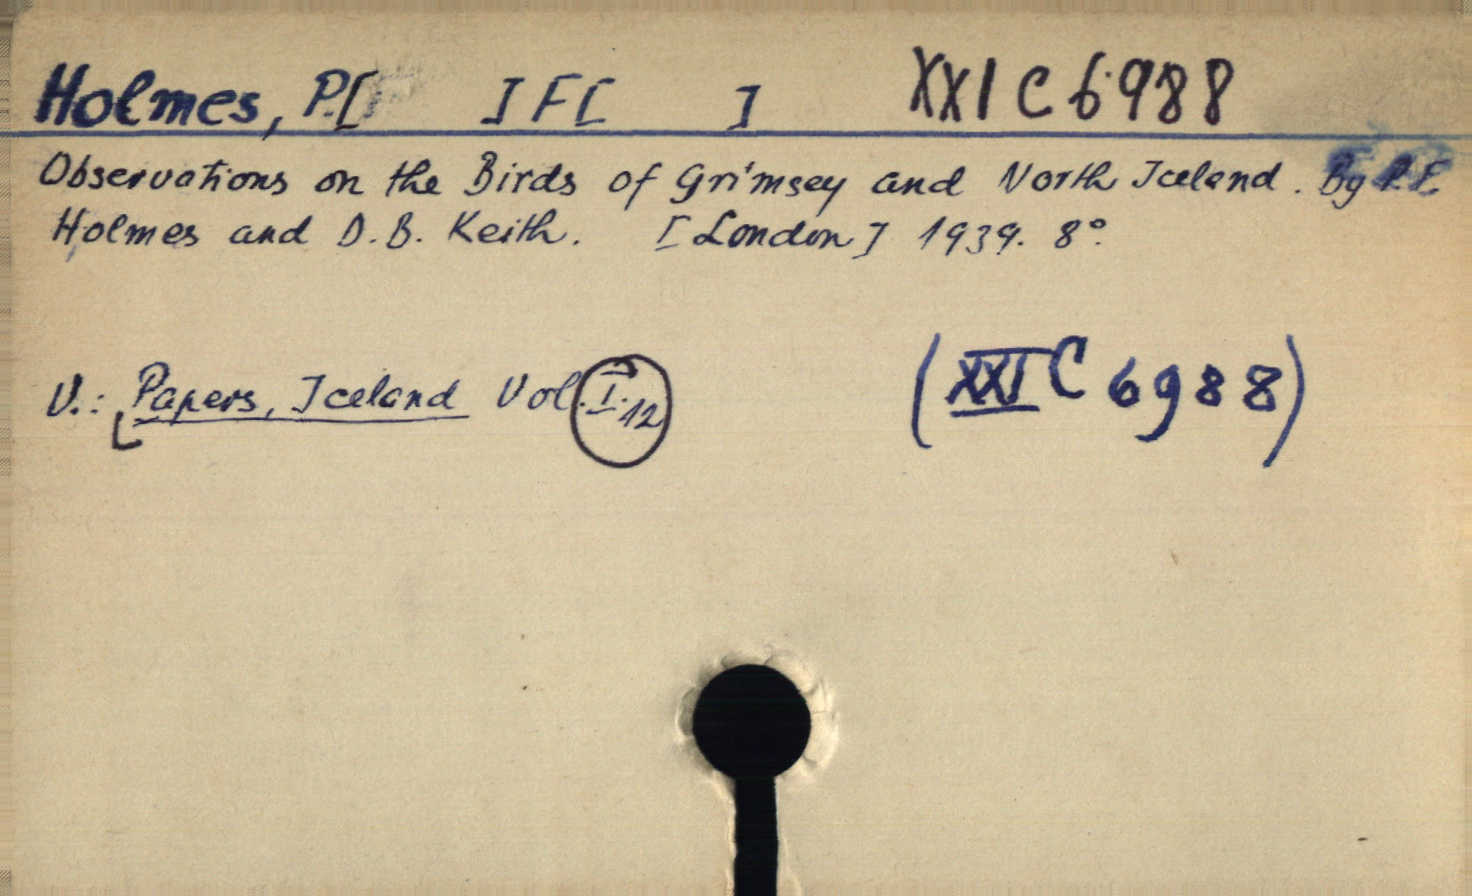 Holmes, P.[ ] F[ ] XXI C 6988
Observations on the Birds of Grimsey and North Iceland. By P.F.
Holmes and D.B. Keith. [London] 1939. 8°.
V.: Papers, Iceland Vol. I. 12 (XXI C 6988)